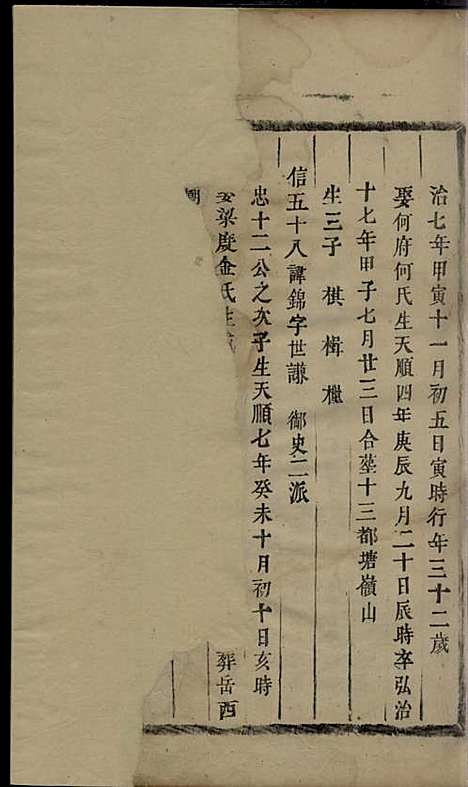 治七年甲寅十一月初五日寅時行年三十二歲
娶何府何氏生天順四年庚辰九月二十日辰時卒弘治
十七年甲子七月廿三日合墓十三都塘嶺山
生三子 棋 楫 權
信五十八諱錦字世謙 御史二派
忠十二公之次子生天順七年癸未十月初十日亥時
娶梁慶金氏生 葬岳西